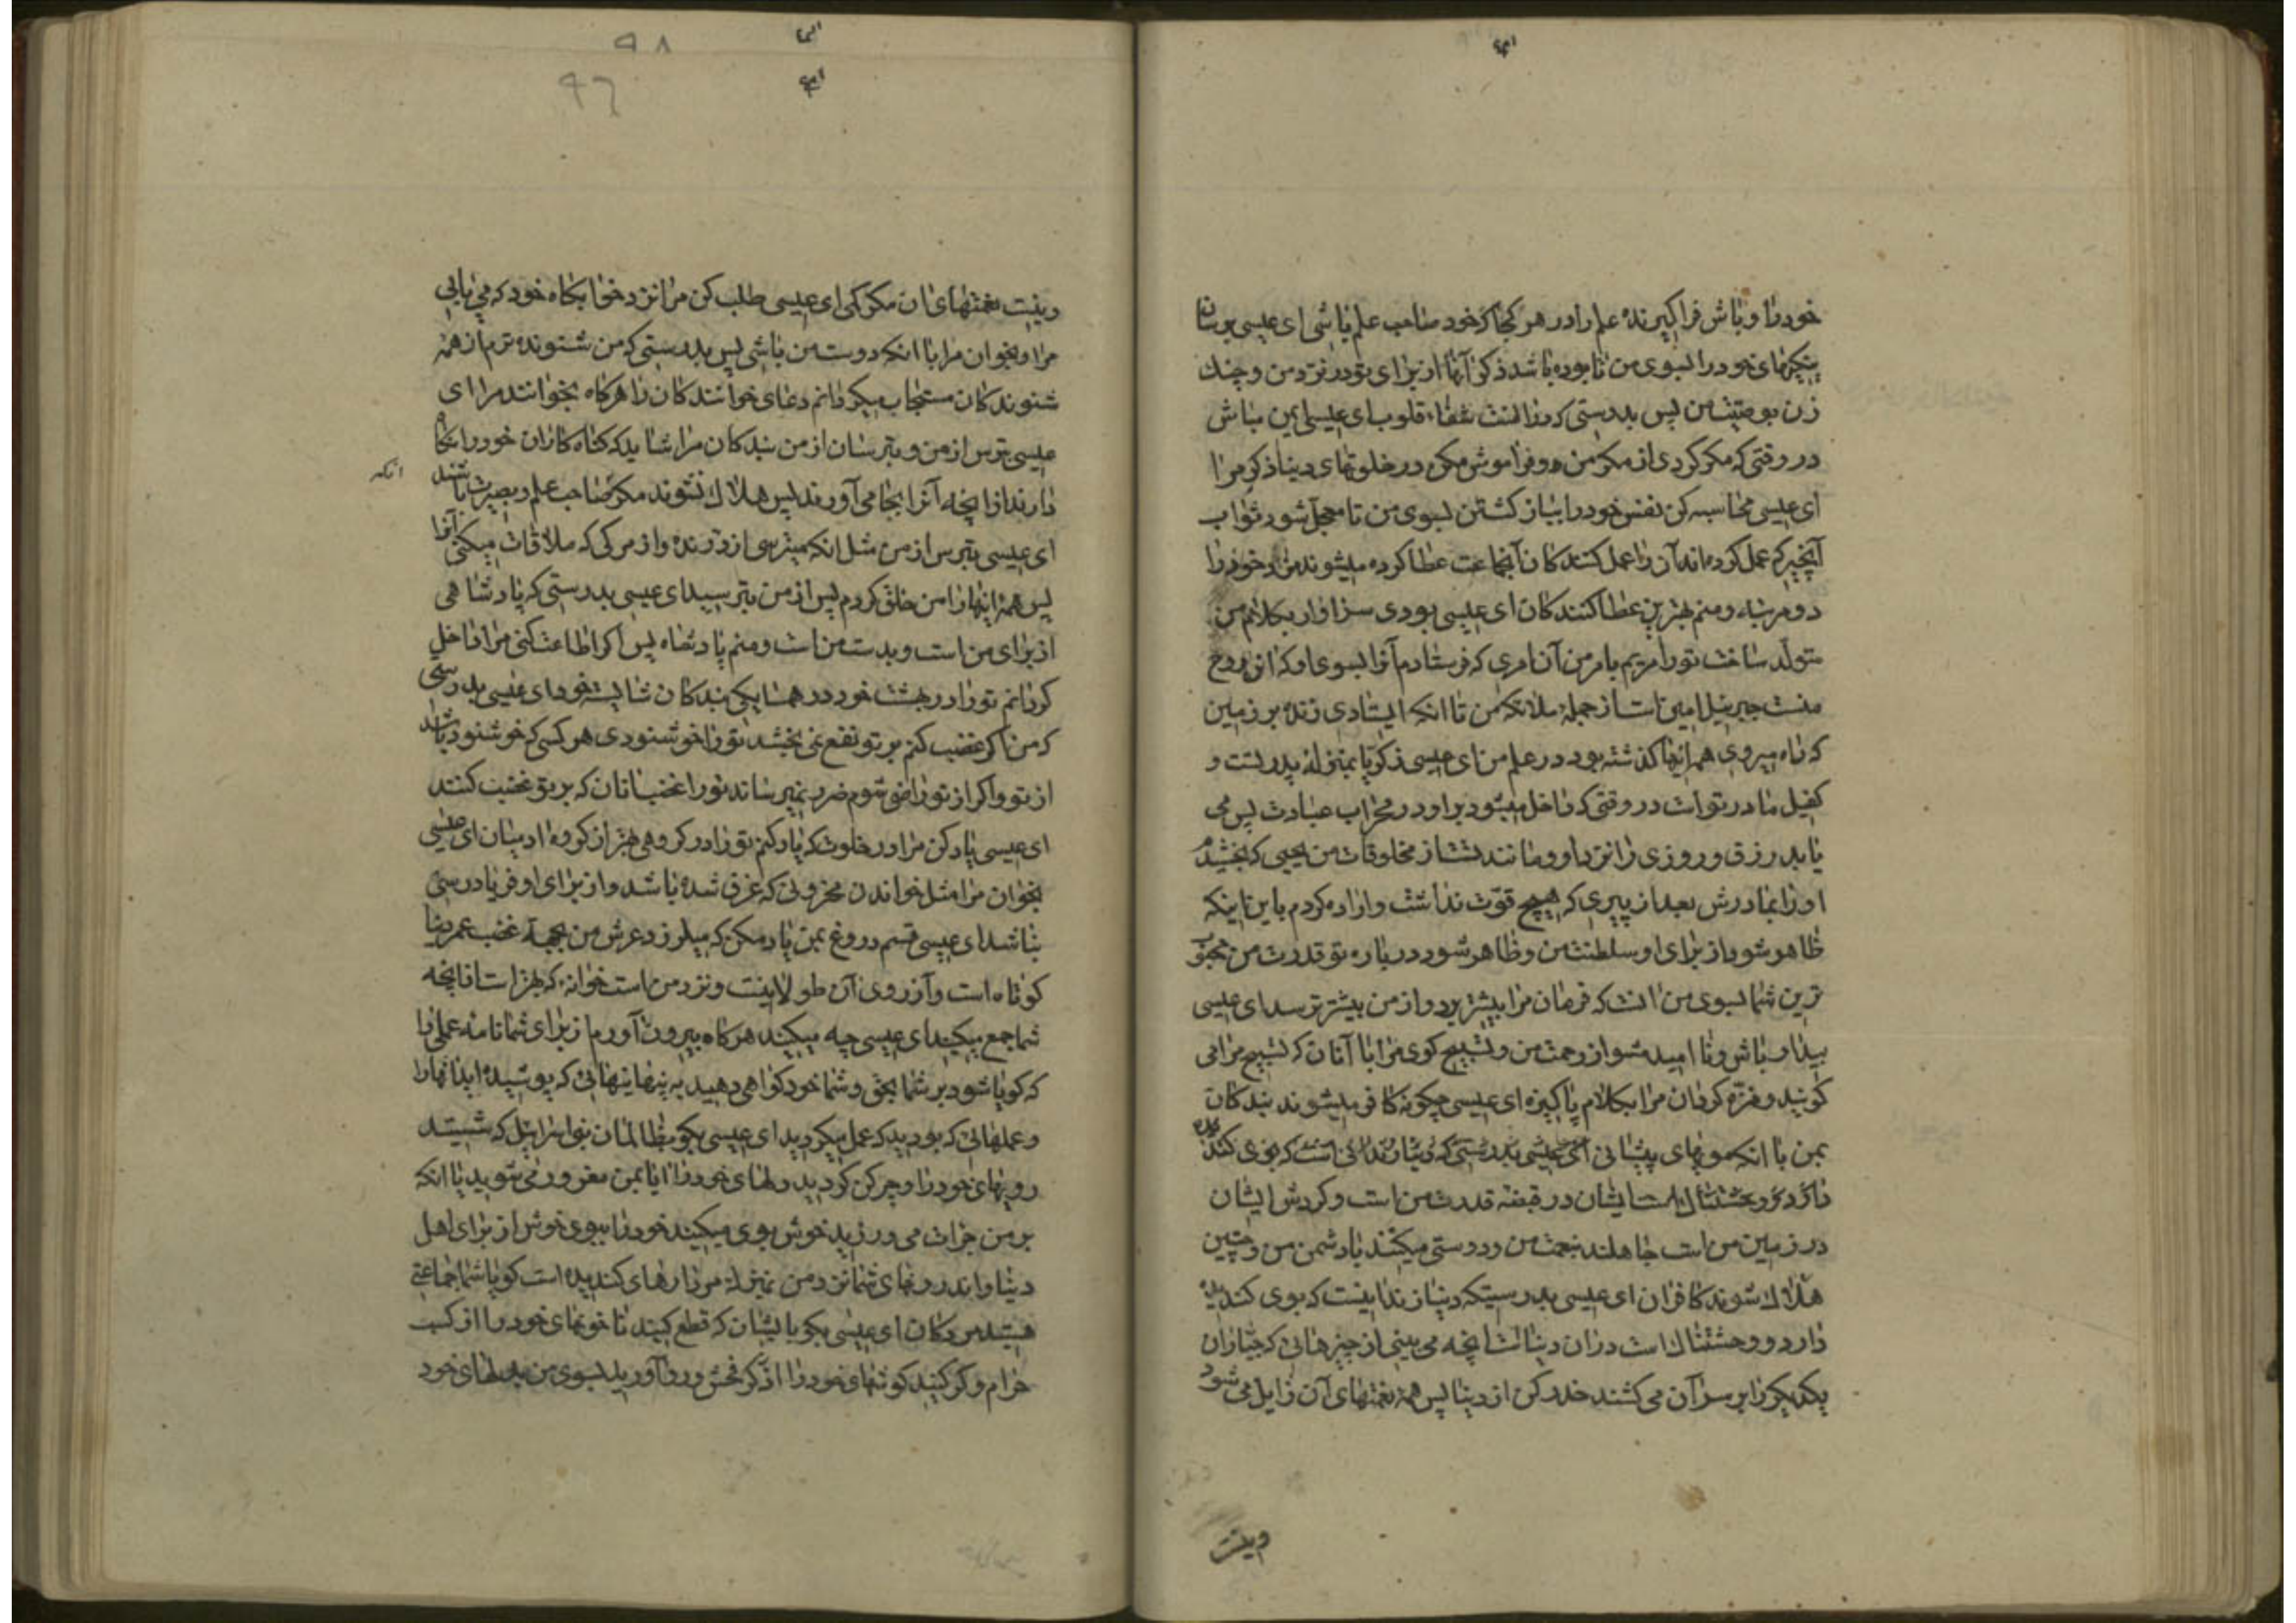 خود را و باش فراگیرنده علم را در هر کجا که خود صاحب علم باشی ای عیسی برسان
نیکیهای خود را بسوی من تا بوده باشد ذکر آنها از برای تو در نزد من و چنک
زن بوصیت من پس بدرستی که در آنست شفاء قلوب ای عیسی ایمن مباش
در وقتی که مکر کردی از مکر من و فراموش مکن در خلوتهای دنیا ذکر مرا
ای عیسی محاسبه کن نفس خود را بباز کشتن بسوی من تا معجل شود ثواب
آنچیزکه عمل کرده‌اند آن را عمل کنندکان آنجماعت عطا کرده میشوند مزد خود را
دو مرتبه و منم بهترین عطا کنندکان ای عیسی بودی سزاوار بکلام من
متولد ساخت تو را مریم بامر من آن امری که فرستادم آنرا بسوی او که ان روح
منست جبرئیل امین است از جمله ملائکه من تا انکه ایستادی زنده بر زمین
که راه میروی همه اینها کذشته بود در علم من ای عیسی زکریا بمنزله پدر تست و
کفیل مادر تو است در وقتی که داخل میشود بر او در محراب عبادت پس می
یابد رزق و روزی را نزد او و مانند تست از مخلوقات من یحیی که بخشیدم
او را بمادرش بعد از پیری که هیچ قوت نداشت و اراده کردم باین اینکه
ظاهر شود از برای او سلطنت من و ظاهر شود در باره تو قدرت من محبوب
ترین شما بسوی من انست که فرمان مرا بیشتر برد و از من بیشتر ترسد ای عیسی
بیدار باش و نا امید مشو از رحمت من و تسبیح کوی مرا با آنان که تسبیح مرا می
کویند و منزه کردان مرا بکلام پاکیزه ای عیسی چکونه کافر میشوند بندکان
بمن با انکه مویهای پیشانی ای عیسی بدرستی که دنیا زندانی است که بوی کندیده
دارد و وحشتناک است ایشان در قبضه قدرت من است و کردش ایشان
در زمین من است جاهلند بنعمت من و دوستی میکنند با دشمن من و چنین
هلاک شوند کافران ای عیسی بدرستیکه دنیا زندانیست که بوی کندیده
دارد و وحشتناک است در آن دنیا است آنچه می بینی از چیزهایی که جباران
یکدیکر را بر سر آن می کشند حذر کن از دنیا پس همه نعمتهای آن زایل می شود
ونیست
ونیست نعمتهای ان مکر کمی ای عیسی طلب کن مرا نزد خوابکاه خود که می یابی
مرا و بخوان مرا با انکه دوست من باشی پس بدرستی که من شنونده ترم از همه
شنوندکان مستجاب میکردانم دعای خوانندکان را هرکاه بخوانند مرا ای
عیسی بترس از من و بترسان از من بندکان مرا شاید که کناه کاران خود را نکاه
دارند از آنچه آنرا بجا می آورند پس هلاک نشوند مکر صاحب علم و بصیرت باشند
انکه
ای عیسی بترس از من مثل انکه میترسی از درنده و از مرکی که ملاقات میکنی آنرا
پس همه اینها را من خلق کردم پس از من بترسید ای عیسی بدرستی که پادشاهی
از برای من است و بدست من است و منم پادشاه پس اکر اطاعت کنی مرا داخل
کردانم تو را در بهشت خود در همسایکی بندکان شایسته خود ای عیسی بدرستی
که من اکر غضب کنم بر تو نفع نمی بخشد تو را خوشنودی هر کسی که خوشنود باشد
از تو و اکر از تو راضی شوم ضرر نمیرساند تو را غضب انان که بر تو غضب کنند
ای عیسی یاد کن مرا در خلوت که یاد کنم تو را در کروهی بهتر از کروه ادمیان ای عیسی
بخوان مرا مثل خواندن محزونی که غرق شده باشد و از برای او فریادرسی
نباشد ای عیسی قسم دروغ بمن یاد مکن که میلرزد عرش من بجهة غضب عمر دنیا
کوتاه است و آرزوی آن طولانیست و نزد من است خوانه که بهتر است از آنچه
شما جمع میکنید ای عیسی چه میکنید هرکاه بیرون آورم از برای شما نامه عملی را
که کویا شود بر شما بحق و شما خود کواهی دهید به پنهانیهائی که پوشیده‌اید انها را
و عملهائی که بودید که عمل میکردید ای عیسی بکو بظالمان بنی اسرائیل که شستید
رویهای خود را و چرکن کردید دلهای خود را ایا بمن مغرور می شوید یا انکه
بر من جرات می ورزید خوش بوی میکنید خود را ببوی خوش از برای اهل
دنیا و اندرونهای شما نزد من بمنزله مردارهای کندیده است کویا شما جماعتی
هستید مردکان ای عیسی بکو با ایشان که قطع کنید ناخونهای خود را از کسب
حرام و کر کنید کوشهای خود را از ذکر فحش و رو آورید بسوی من بدلهای خود